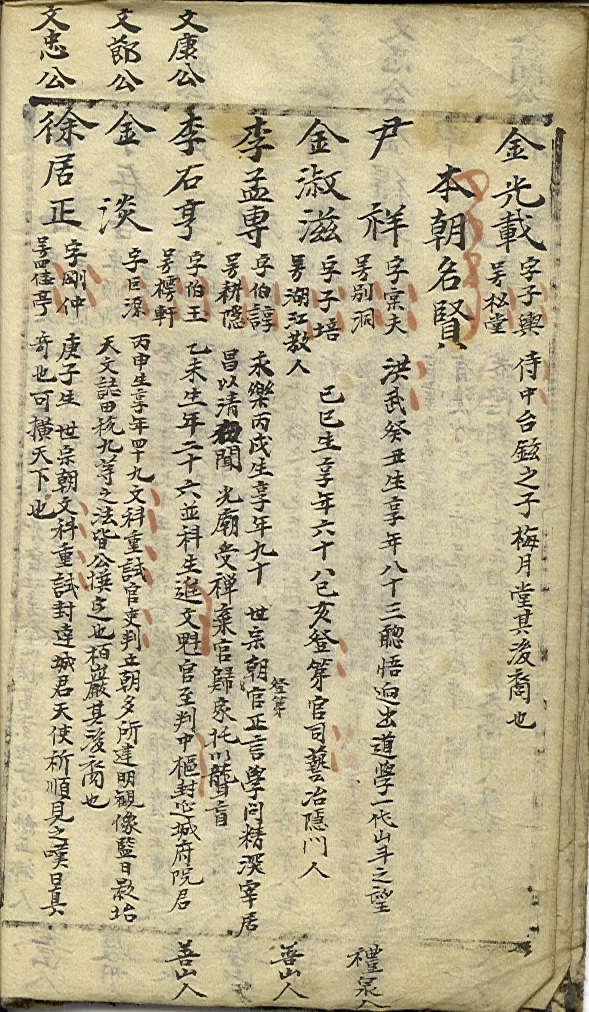 金光載 字子興 号松堂 侍中台鉉之子梅月堂其後裔也
本朝名賢
尹祥 字棠夫 号別洞 洪武癸丑生享年八十三聰悟迥出道學一代山斗之望 禮泉人
金淑滋 字子培 号湖江散人 己巳生享年六十八己亥登第官司藝冶隱門人 善山人
李孟專 字伯諄 号耕隱 永樂丙戌生享年九十 世宗朝登第官正言學問精深宰居
昌以清聞 光廟受禪棄官歸家托以聾盲
文康公 李石亨 字伯玉 号樗軒 乙未生年二十六並科生進文魁官至判中樞封延城府院君 善山人
文節公 金淡 字巨源 丙申生享年四十九文科重試官吏判立朝多所建明觀像監日影坮
天文誌田稅九等之法皆公撰定也栢巖其後裔也
文忠公 徐居正 字剛仲 号四佳亭 庚子生 世宗朝文科重試封達城君天使祈順見之嘆曰真
奇也可擅天下也